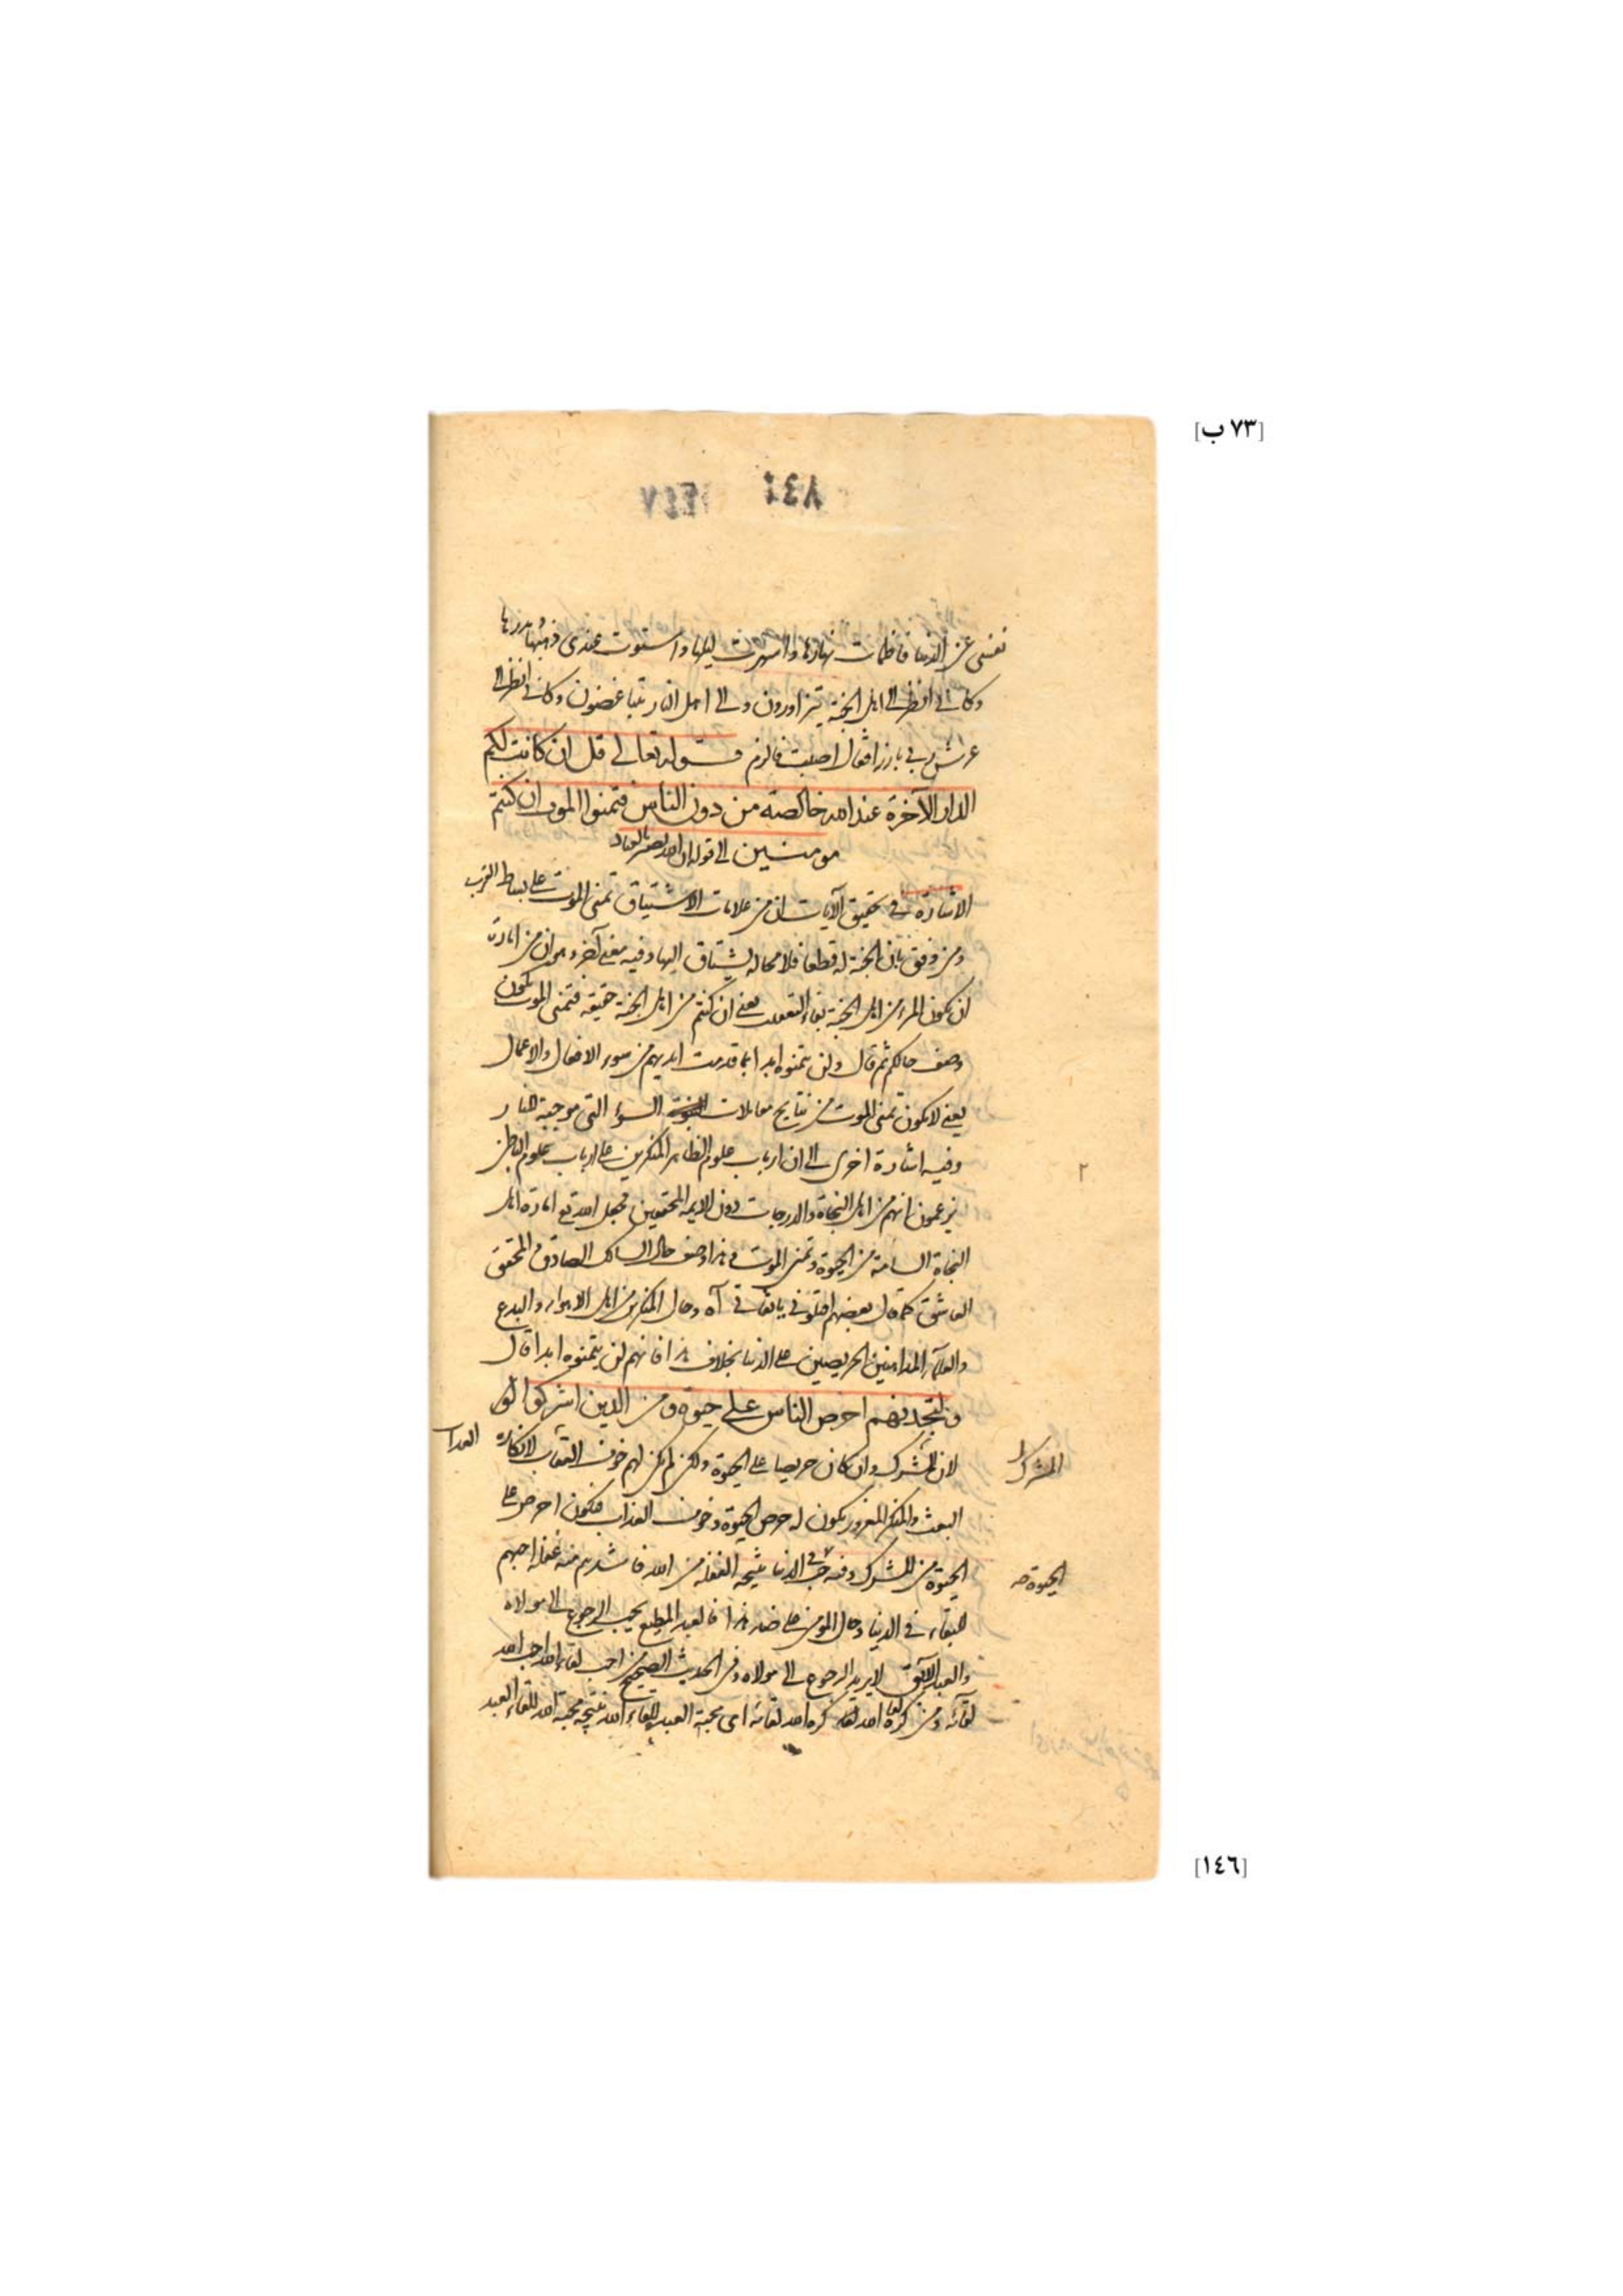 [٧٣ ب]
نفسى عن الدنيا فاظمات نهارها واسهرت ليلها واستوت عندى ذهبها ومدرها
وكانى انظر الى اهل الجنة يتزاورون والى اهل النار يتباغضون وكانى انظر الى
عرش ربى بارزا فقال اصبت فالزم قوله تعالى قل ان كانت لكم
الدار الآخرة عند الله خالصة من دون الناس فتمنوا الموت ان كنتم
مومنين الى قوله
الاشارة فى تحقيق الآيات ان من علامات الاشتياق تمنى الموت على بساط القرب
ومن وفق بان الجنة له قطعا فلا محالة يشتاق اليها وفيه معنى آخر وهو ان من امارة
ان يكون المرء من اهل الجنة يعنى ان كنتم من اهل الجنة حقيقة فتمنى الموت يكون
وصف حالكم ثم قال ولن يتمنوه ابدا بما قدمت ايديهم من سوء الافعال والاعمال
يعنى لا يكون تمنى الموت من نتايج معاملات السوء التى موجبة للنار
وفيه اشارة اخرى الى ان ارباب علوم الظاهر المنكرين على ارباب علوم الباطن
يزعمون انهم من اهل النجاة والدرجات دون الايمة المحققين فجعل الله تع امارة اهل
النجاة السامة من الحيوة وتمنى الموت وهذا وصف حال السالك الصادق والمحقق
العاشق كما قال بعضهم اقتلونى يا ثقاتى آه وحال المنكرين من اهل الاهواء والبدع
والعلماء المداهنين الحريصين على الدنيا بخلاف هذا فانهم لن يتمنوه ابدا قال
ولتجدنهم احرص الناس على حيوة ومن الذين اشركوا
لان المشرك وان كان حريصا على الحيوة ولكن لم يكن لهم خوف العقاب لانكاره
المشرك
البعث والمنكر المغرور يكون له حرص الحيوة وخوف العذاب فيكون احرص على
الحيوة من المشرك وفيه حب الدنيا نتيجة الغفلة من الله فاشدهم منه غفلة احبهم
الحيوة
للبقاء فى الدنيا وحال المومن على ضد هذا فالعبد المطيع يحب الرجوع الى مولاه
والعبد الآبق لا يريد الرجوع الى مولاه وفى الحديث الصحيح من احب لقاء الله احب الله
لقائه ومن كره لقاء الله كره الله لقائه اى محبة العبد للقاء الله نتيجة محبة الله للقاء العبد
[١٤٦]